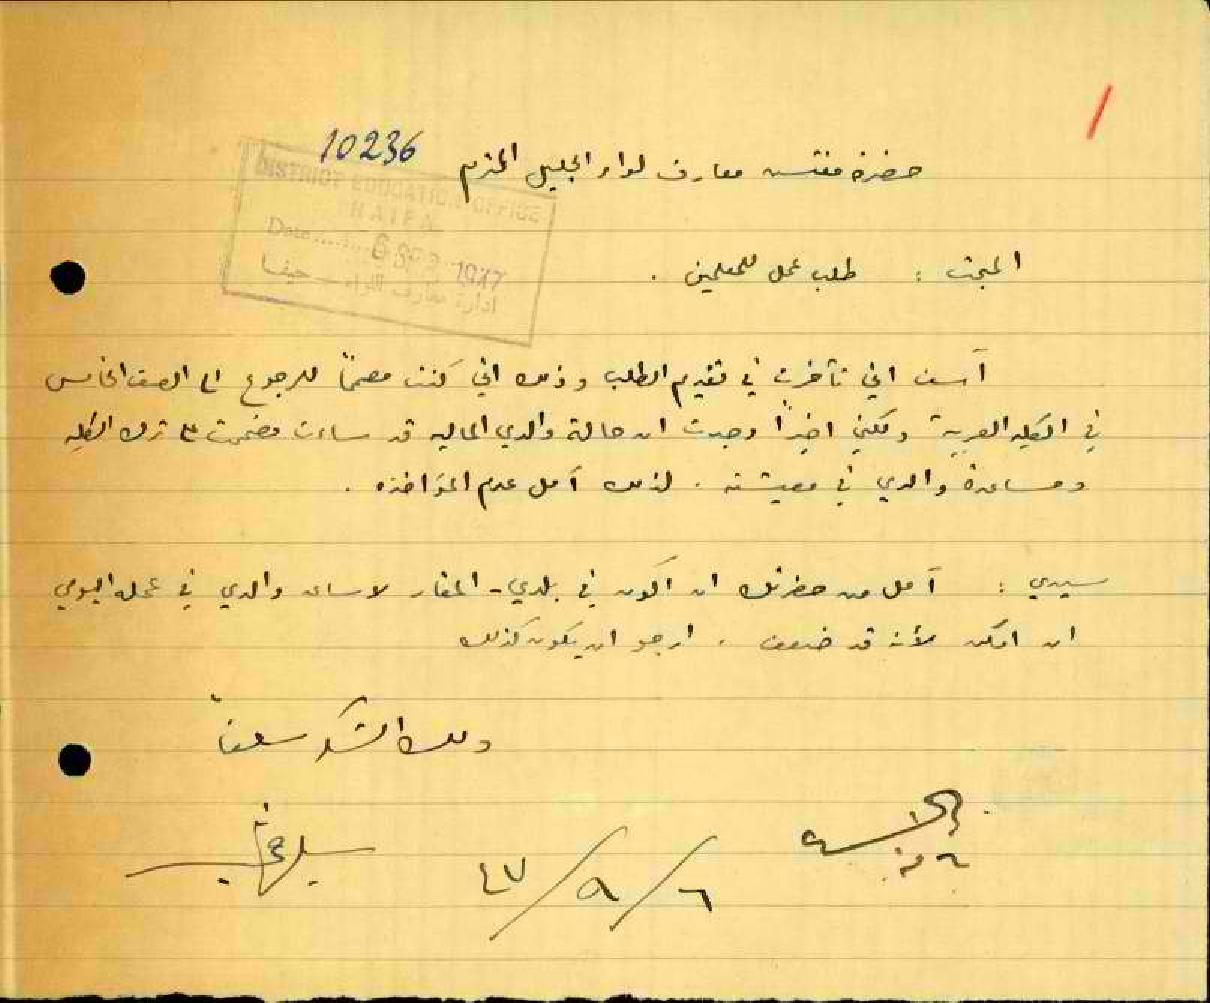 10236
حضرة مفتش معارف لواء الجليل المحترم
DISTRICT EDUCATION OFFICE
HAIFA
Date ........ 6 SEP 1947
ادارة معارف اللواء — حيفا
المبحث : طلب عمل للمعلمين .
آسف اني تأخرت في تقديم الطلب وذلك اني كنت مصمماً للرجوع الى الصف الخامس
في الكليه العربية ولكني اخيراً وجدت ان حالة والدي الماليه قد ساءت فصممت على ترك الكليه
ومساعدة والدي في معيشته . لذلك آمل عدم المؤاخذه .
سيدي : آمل من حضرتك ان اكون في بلدي - المغار لاساعد والدي في عمله اليومي
ان امكن لأنه قد ضعف . ارجو ان يكون كذلك
ولك الشكر سلفاً
٦/٩/٤٧